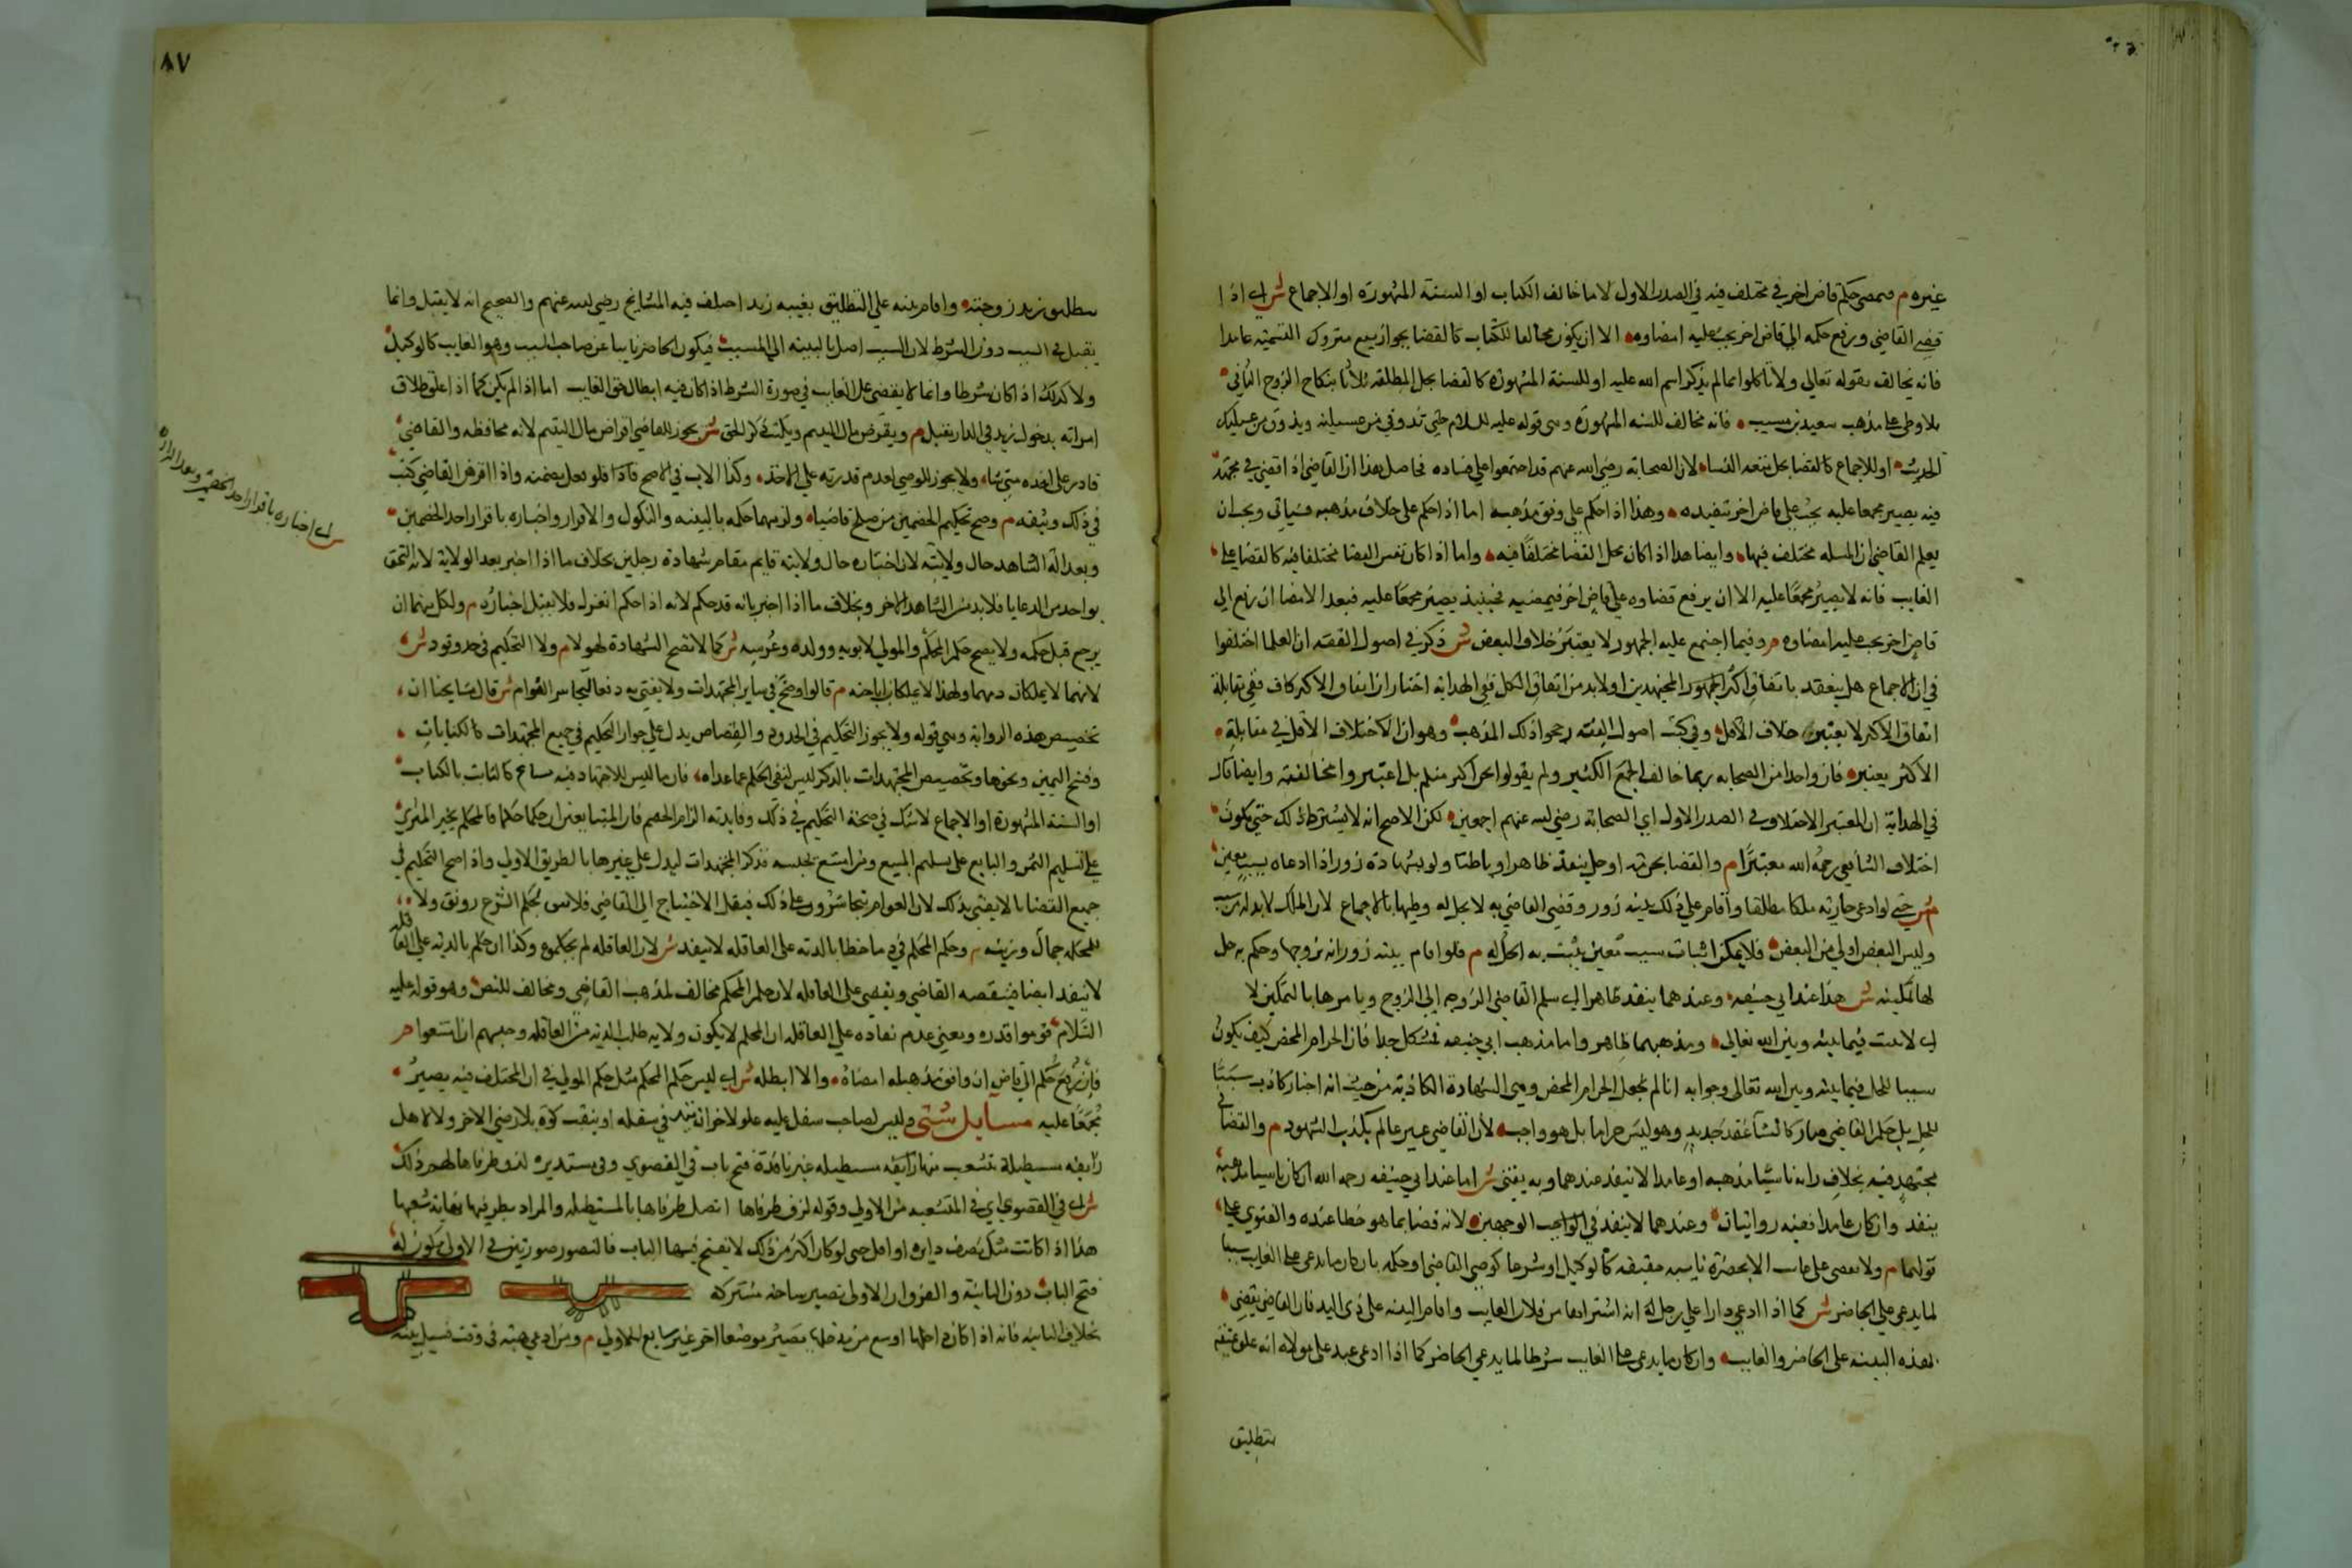 غيره م ويمضى حكم قاض اخر في مختلف فيه في الصدر الاول لا ما خالف الكتاب او السنة المشهورة او الاجماع ش اي اذا
قضى القاضي ورفع حكمه الي قاض اخر يجب عليه امضاوه الا ان يكون مخالفا للكتاب كالقضا بجواز بيع متروك التسمية عامدا
فانه يخالف بقوله تعالي ولا تاكلوا مما لم يذكر اسم الله عليه او للسنة المشهورة كالقضا بحل المطلقة ثلاثا بنكاح الزوج الثاني
بلا وطى على مذهب سعيد بن مسيب فانه مخالف للسنه المشهورة وهى قوله عليه السلام حتي تذوقي من عسيلته ويذوق من عسيلتك
الحديث او للاجماع كالقضا بحل متعه النساء لان الصحابة رضي الله عنهم قد اجتمعوا على فساده فحاصل هذا ان القاضي اذا قضي في مجتهد
فيه يصير مجمعا عليه يجب على قاض اخر تنفيذه وهذا اذا حكم على وفق مذهبه اما اذا حكم على خلاف مذهبه فسياتي ويجب ان
يعلم القاضي ان المسله مختلف فيها وايضا هذا اذا كان محل القضا مختلفا فيه واما اذا كان نفس القضا مختلفا فيه كالقضا على
الغايب فانه لا يصير مجمعا عليه الا ان يرفع قضاوه على قاض اخر فيمضيه فحينيذ يصير مجمعا عليه فبعد الامضا ان رفع الى
قاض اخر يجب عليه امضاوه م وفيما اجتمع عليه الجمهور لا يعتبر خلاف البعض ش ذكر في اصول الفقه ان العلما اختلفوا
في ان الاجماع هل ينعقد باتفاق اكثر المجتهدين او لا بد من اتفاق الكل ففي الهداية اختار ان اتفاق الاكثر كاف ففي مقابلة
اتفاق الاكثر لا يعتبر خلاف الاقل وفي كتب اصول الفقه رجحوا ذلك المذهب وهو ان اختلاف الاقل في مقابلة
الاكثر يعتبر فان واحدا من الصحابه ربما خالف الجمع الكثير ولم يقولوا نحن اكثر منكم بل اعتبروا مخالفته وايضا قال
في الهداية ان المعتبر الاختلاف في الصدر الاول اي الصحابة رضي الله عنهم اجمعين لكن الاصح انه لا يشترط ذلك حتي يكون
اختلاف الشافعي رحمه الله معتبرا م والقضا بحرمة او حل ينفذ ظاهرا وباطنا ولو بشهادة زور اذا ادعاه بسبب معين
ش حتى لو ادعى جارية ملكا مطلقا واقام على ذلك بينه زور وقضى القاضي به لا يحل له وطيها بالاجماع لان الملك لا بد له من سبب
وليس البعض اولي من البعض فلا يمكن اثبات سبب معين يثبت به الحل م فلو اقام بينة زور انه تزوجها وحكم به حل
لها تمكينه ش هذا عند ابي حنيفه وعندهما ينفذ ظاهرا اي يسلم القاضي الزوجه إلى الزوج ويامرها بالتمكين لا
فيما بينه وبين الله تعالى ومذهبهما ظاهر واما مذهب ابي حنيفه فمشكل جدا فان الحرام المحض كيف يكون
سببا للحل فيما بينه وبين الله تعالى وجوابه انا لم نجعل الحرام المحض وهى الشهادة الكاذبة من حيث انه اخبار كاذب سببا
للحل بل حكم القاضي صار كانشا عقد جديد وهو ليس حراما بل هو واجب لان القاضي غير عالم بكذب الشهود م والقضا في
مجتهد فيه بخلاف رايه ناسيا مذهبه او عامدا لا ينفذ عندهما وبه يفتى ش اما عند ابي حنيفه رحمه الله ان كان ناسيا مذهبه
ينفذ وان كان عامدا ففيه روايتان وعندهما لا ينفذ في الوجهين لانه قضا بما هو خطا عنده والفتوي على
قولهما م ولا يقضى على غايب الا بحضرة نايبه حقيقة كالوكيل او شرعا كوصي القاضي او حكما بان كان ما يدعى على الغايب سببا
لما يدعى على الحاضر ش كما اذا ادعي دارا علي رجل انه اشتراها من فلان الغايب واقام البينه على ذى اليد فان القاضي يقضي
بهذه البينه على الحاضر والغايب وان كان ما يدعى على الغايب شرطا لما يدعي على الحاضر كما اذا ادعى عبد على مولاه انه علق عتقه
بتطليق
٨٧
بتطليق زيد زوجته واقام بينه علي التطليق بغيبه زيد اختلف فيه المشايخ رضي الله عنهم والصحيح انه لا يقبل وانما
يقبل في السبب دون الشرط لان السبب اصل بالنسبه الى المسبب فيكون الحاضر نايبا عن صاحب السبب وهو الغايب كالوكيل
ولا كذلك اذا كان شرطا وانما لا يقضى على الغايب في صورة الشرط اذا كان فيه ابطال حق الغايب اما اذا لم يكن كما اذا علق طلاق
امراته بدخول زيد في الدار يقبل م ويقرض مال اليتيم ويكتب ذكر الحق ش يجوز للقاضي اقراض مال اليتيم لانه محافظه والقاضي
قادر على اخذه متي شاء ولا يجوز للوصي لعدم قدرته علي الاخذ وكذا الاب في الاصح فاذا فلو فعل يضمنه واذا اقرض القاضي كتب
في ذلك وثيقه م وصح تحكيم الخصمين من صلح قاضيا ولزمهما حكمه بالبينه والنكول والاقرار واخباره باقرار احد الخصمين
وبعدالة الشاهد حال ولايته لان اخباره حال ولايته قايم مقام شهادة رجلين بخلاف ما اذا اخبر بعد الولاية لانه التحق
بواحد من الرعايا فلا بد من الشاهد الاخر وبخلاف ما اذا اخبر بانه قد حكم لانه اذا حكم انعزل فلا يقبل اخباره م ولكل منهما ان
يرجع قبل حكمه ولا يصح حكم المحكم والمولي لابويه وولده وعرسه ش كما لا تصح الشهادة لهولا م ولا التحكيم في حد وقود ش
لانهما لا يملكان دمهما ولهذا لا يملكان اباحته م قالوا وصح في ساير المجتهدات ولا يفتي به دفعا لتجاسر العوام ش قال مشايخنا ان
تخصيص هذه الرواية وهي قوله ولا يجوز التحكيم في الحدود والقصاص يدل على جواز التحكيم في جميع المجتهدات كالكنايات
وفسخ اليمين ونحوها وتخصيص المجتهدات بالذكر ليس لنفي الحكم عما عداه فان ما ليس للاجتهاد فيه مساغ كالثابت بالكتاب
او السنة المشهورة او الاجماع لا شك في صحة التحكيم في ذلك وفايدته الزام الخصم فالمحكم يجبر المشتري
على تسليم الثمن والبايع على تسليم المبيع ومن امتنع يحبسه فذكر المجتهدات ليدل على غيرها بالطريق الاولي واذا صح التحكيم في
جميع القضايا لا يفتي بذلك لان العوام يتجاسرون على ذلك فيقل الاحتياج الى القاضي فلا يبقى لحكم الشرع رونق ولا
للمحكمه جمال وزينه م وحكم المحكم في دم خطا بالدية على العاقله لا ينفذ ش لان العاقله لم يحكموه وكذا ان حكم بالدية على القاتل
لا ينفذ ايضا فينقضه القاضي ويقضي على العاقله لان حكم المحكم مخالف لمذهب القاضي ومخالف للنص وهو قوله عليه
السلام قوموا فدوه ومعنى عدم نفاذه علي العاقله ان المحكم لا يكون ولاية طلب الدية من العاقله وحبسهم ان امتنعوا م
فان رفع حكم الى قاض ان وافق مذهبه امضاه والا ابطله ش اي ليس حكم المحكم مثل حكم المولي في ان المختلف فيه يصير
مجمعا عليه مسايل شتى م وليس لصاحب سفل عليه علو لاخر ان يتد في سفله او ينقب كوة بلا رضي الاخر ولا لاهل
زايغه مستطيلة تتشعب منها زايغه مستطيله غير نافذة فتح باب في القصوي وفي مستديرة لزق طرفاها لهم ذلك
ش اي في القصوي اي في المتشعبه من الاولي وقوله لزق طرفاها اتصل طرفاها بالمستطيله والمراد بطرفيها نهاية شعبها
هذا اذا كانت مثل نصف دايره او اقل حتى لو كان اكثر من ذلك لا يفتح فيها الباب فالنصور صورتين في الاولى يكون له
فتح الباب دون الثانية والفرق ان الاولى تصير ساحة مشتركة
بخلاف الثانيه فانه اذا كان داخلها اوسع من مدخلها يصير موضعا اخر غير تابع للاولي م ومن ادعى هبة في وقت فسيل بينه
ش اي اخباره باقرار احد الخصمين وبعدالة